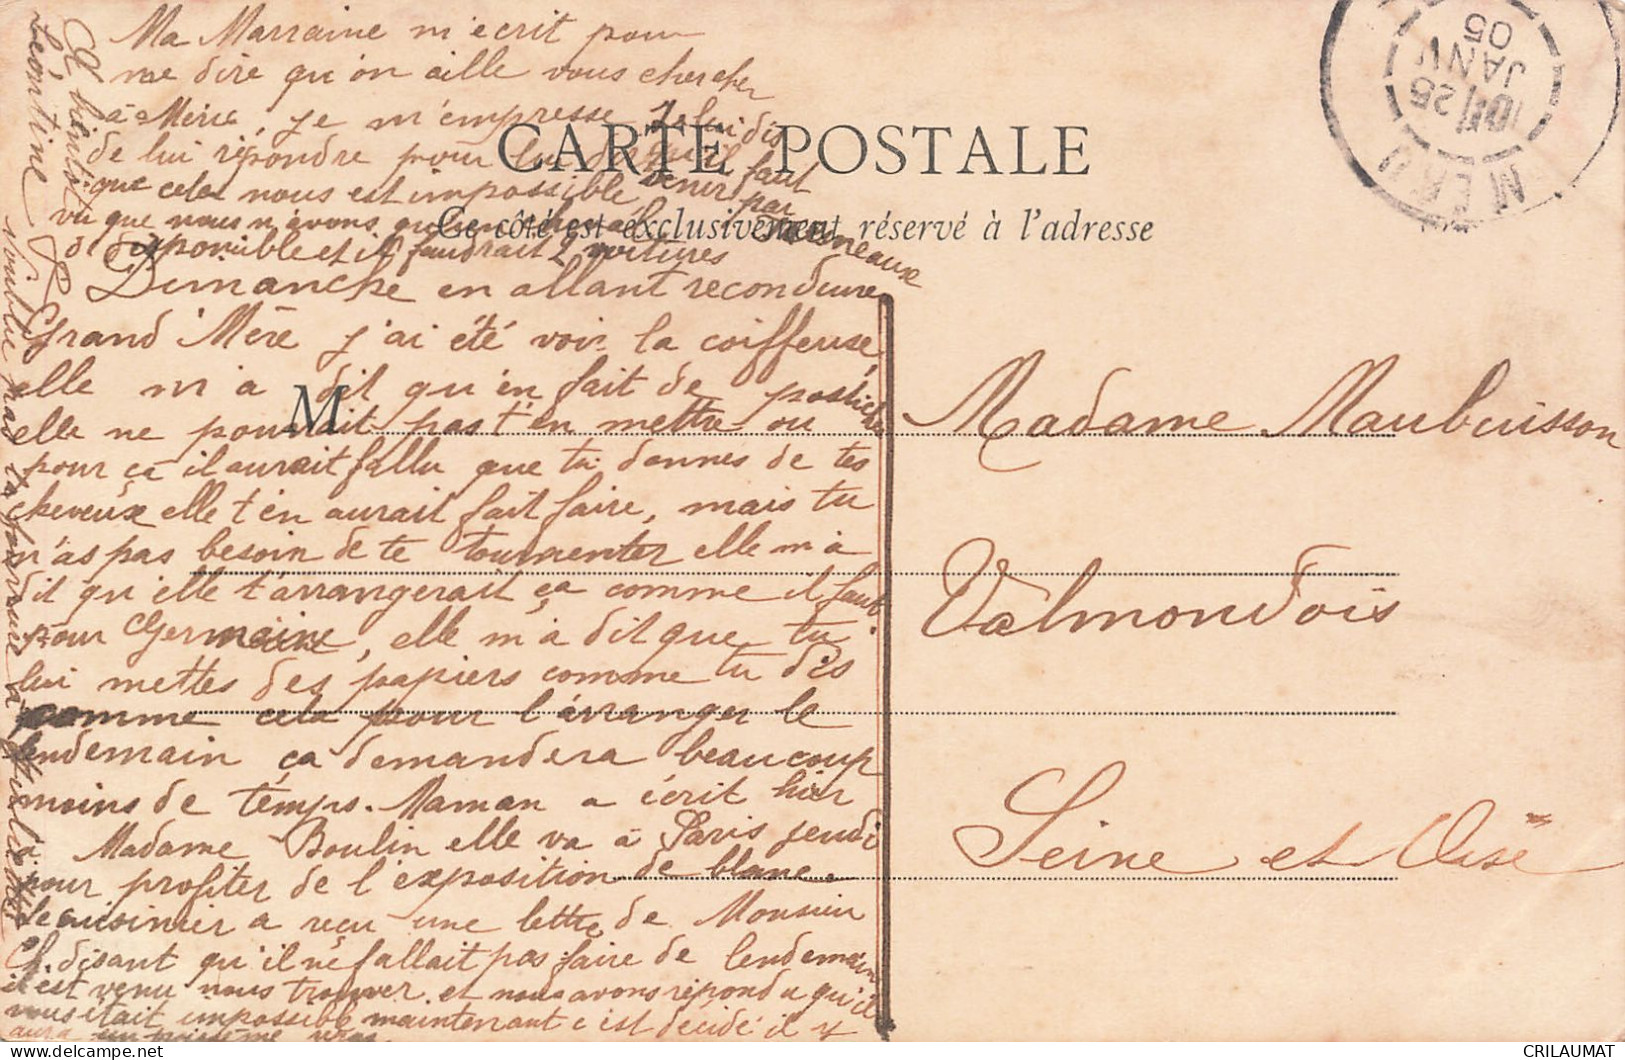 Ma Marraine m'écrit pour
me dire qu'on aille vous chercher
à Méru, je m'empresse
de lui répondre pour lui dire
que cela nous est impossible
vu que nous n'avons qu'un cheval
disponible et il faudrait 2 voitures
Je lui dis
qu'il faut
venir par
Dimanche en allant reconduire
Grand'Mère j'ai été voir la coiffeuse,
elle m'a dit qu'en fait de postiche
elle ne pourrait pas t'en mettre ou
pour ça il aurait fallu que tu donnes de tes
cheveux elle t'en aurait fait faire, mais tu
n'as pas besoin de te tourmenter elle m'a
dit qu'elle t'arrangerait ça comme il faut.
pour Germaine, elle m'a dit que tu
lui mettes des papiers comme tu dis
comme cela pour l'arranger le
lendemain ça demandera beaucoup
moins de temps. Maman a écrit hier
à Madame Boulin elle va à Paris jeudi
pour profiter de l'exposition de blanc.
Le cuisinier a reçu une lettre de Monsieur
Ch. disant qu'il ne fallait pas faire de lendemain
il est venu nous trouver et nous avons répondu qu'il
nous était impossible maintenant c'est décidé il y
aura un troisième repas
A bientôt
Léontine
N'oublie pas ta fourrure
CARTE POSTALE
Ce côté est exclusivement réservé à l'adresse
M
Madame Maubuisson
Valmondois
Seine et Oise
MERU
25
JANV
05
CRILAUMAT